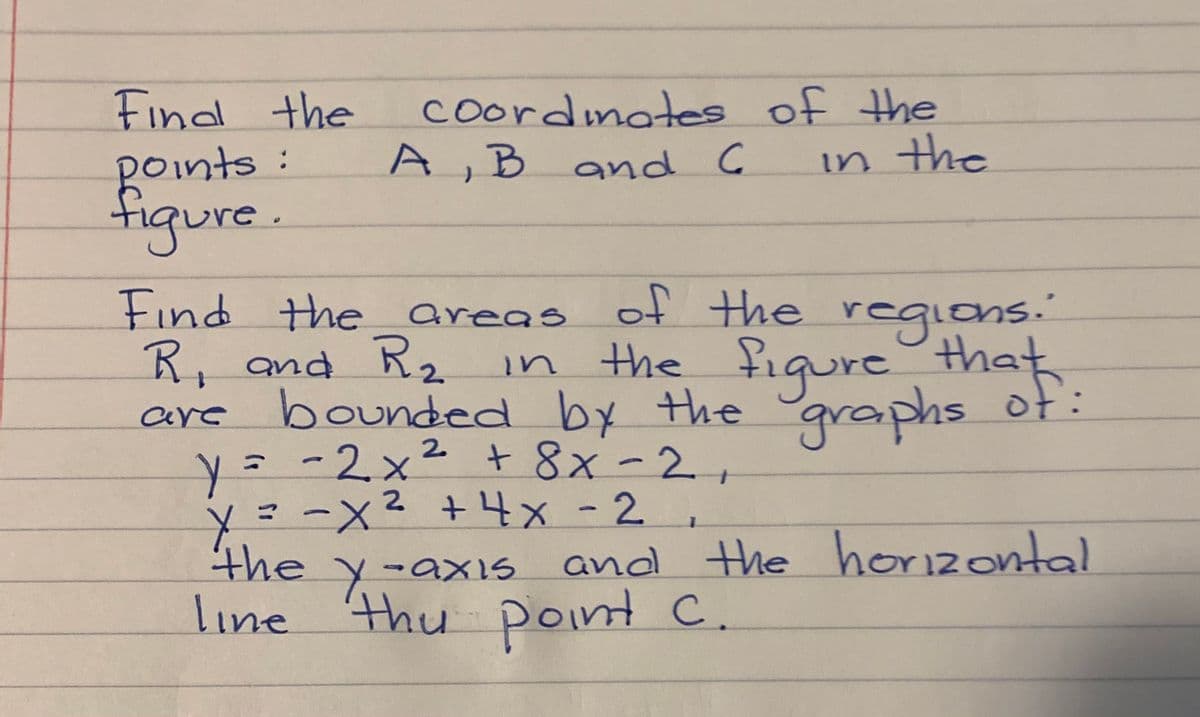 Find the coordinates of the
points: A, B and C in the
figure.
Find the areas of the regions:
R₁ and R₂ in the figure that
are bounded by the graphs of:
y = -2x² + 8x - 2,
y = -x² + 4x - 2,
the y-axis and the horizontal
line thu point C.